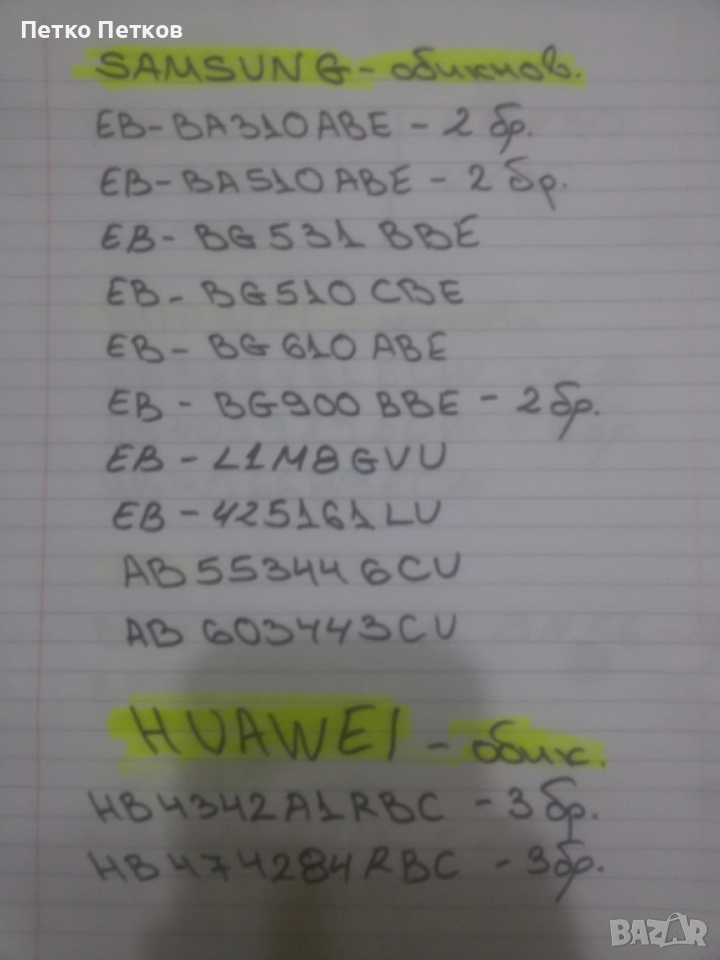 Петко Петков
SAMSUNG - обикнов.
EB-BA310ABE - 2 бр.
EB-BA510ABE - 2 бр.
EB-BG531BBE
EB-BG510CBE
EB-BG610ABE
EB-BG900BBE - 2 бр.
EB-L1M8GVU
EB-425161LU
AB553446CU
AB603443CU
HUAWEI - обик.
HB4342A1RBC - 3 бр.
HB474284RBC - 3 бр.
BAZAR